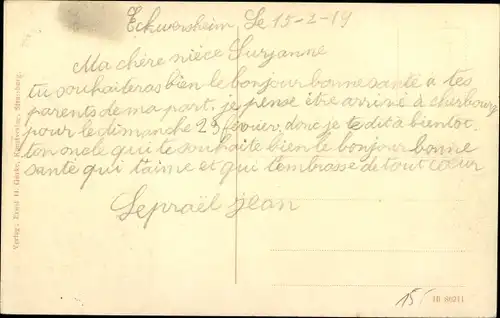 Eckwersheim Le 15-2-19
Ma chère nièce Suzanne
tu souhaiteras bien le bonjour bonne santé à tes
parents de ma part, je pense être arrivé à cherbourg
pour le dimanche 23 fevrier, donc je te dit à bientot.
ton oncle qui te souhaite bien le bonjour bonne
santé qui t'aime et qui t'embrasse de tout cœur
Lepraël jean
Verlag: Ernst H. Strassburg.
15